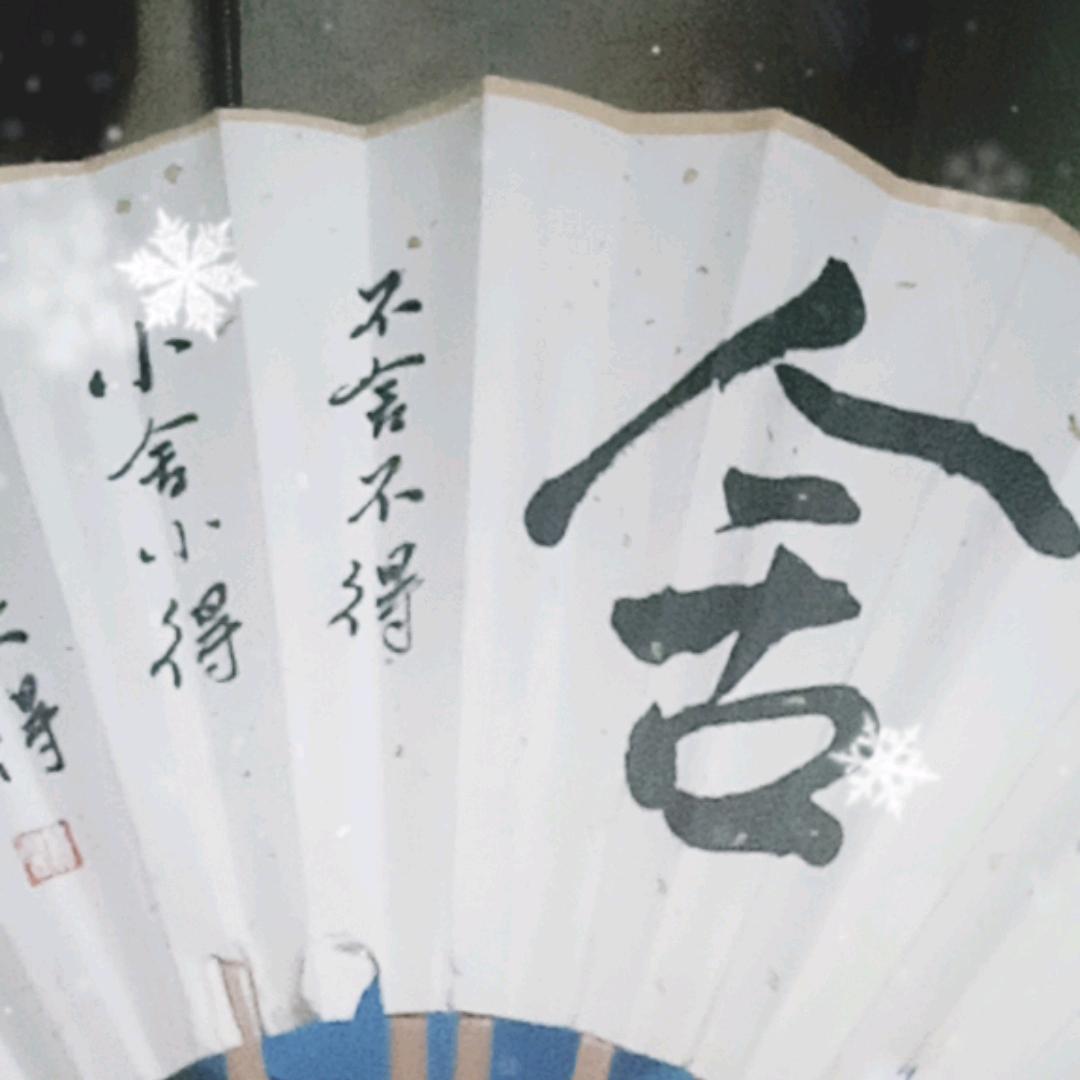 舍
不舍不得
小舍小得
得